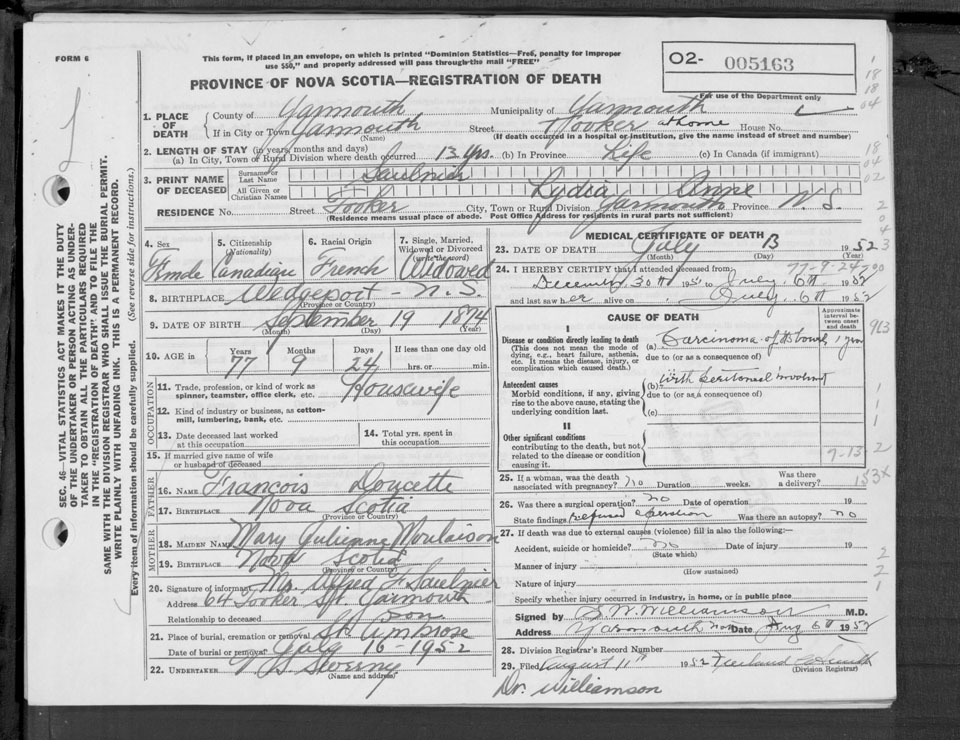 FORM 6
This form, if placed in an envelope, on which is printed "Dominion Statistics—Free, penalty for improper
use $50," and properly addressed will pass through the mail "FREE"
PROVINCE OF NOVA SCOTIA—REGISTRATION OF DEATH
O2- 005163
For use of the Department only
SEC. 46—VITAL STATISTICS ACT MAKES IT THE DUTY
OF THE UNDERTAKER OR PERSON ACTING AS UNDER-
TAKER TO OBTAIN ALL THE PARTICULARS REQUIRED
IN THE "REGISTRATION OF DEATH" AND TO FILE THE
SAME WITH THE DIVISION REGISTRAR WHO SHALL ISSUE THE BURIAL PERMIT.
WRITE PLAINLY WITH UNFADING INK. THIS IS A PERMANENT RECORD.
Every item of information should be carefully supplied. (See reverse side for instructions.)
1. PLACE OF DEATH County of Yarmouth Municipality of Yarmouth
If in City or Town Yarmouth Street Tooker at home House No.
(Name) (If death occurred in a hospital or institution, give the name instead of street and number)
2. LENGTH OF STAY (in years, months and days)
(a) In City, Town or Rural Division where death occurred 13 Yrs. (b) In Province Life (c) In Canada (if immigrant)
3. PRINT NAME OF DECEASED Surname or Last Name Saulnier
All Given or Christian Names Lydia Anne
RESIDENCE No. Street Tooker City, Town or Rural Division Yarmouth Province N.S.
(Residence means usual place of abode. Post Office Address for residents in rural parts not sufficient)
4. Sex Female
5. Citizenship (Nationality) Canadian
6. Racial Origin French
7. Single, Married, Widowed or Divorced (write the word) Widowed
8. BIRTHPLACE Wedgeport - N.S.
(Province or Country)
9. DATE OF BIRTH September 19 1874
(Month) (Day) (Year)
10. AGE in Years 77 Months 9 Days 24 If less than one day old hrs. or min.
OCCUPATION
11. Trade, profession, or kind of work as spinner, teamster, office clerk, etc. Housewife
12. Kind of industry or business, as cotton-mill, lumbering, bank, etc.
13. Date deceased last worked at this occupation
14. Total yrs. spent in this occupation
15. If married give name of wife or husband of deceased
FATHER
16. NAME François Doucette
17. BIRTHPLACE Nova Scotia
(Province or Country)
MOTHER
18. MAIDEN NAME Mary Julienne Moulaison
19. BIRTHPLACE Nova Scotia
(Province or Country)
20. Signature of informant Mr. Alfred F Saulnier
Address 64 Tooker St. Yarmouth
Relationship to deceased Son
21. Place of burial, cremation or removal St. Ambrose
Date of burial or removal July 16 - 1952
22. UNDERTAKER Sweeny
(Name and address)
MEDICAL CERTIFICATE OF DEATH
23. DATE OF DEATH July 13 1952
(Month) (Day) (Year)
77-9-24
24. I HEREBY CERTIFY that I attended deceased from:
December 30th 1951 to July 6th 1952
and last saw her alive on July 6th 1952
CAUSE OF DEATH
Approximate interval between onset and death
I
Disease or condition directly leading to death
(This does not mean the mode of dying, e.g., heart failure, asthenia, etc. It means the disease, injury, or complication which caused death.)
(a) Carcinoma of bowel 1 year
due to (or as a consequence of)
Antecedent causes
Morbid conditions, if any, giving rise to the above cause, stating the underlying condition last.
(b) with peritoneal involvment
due to (or as a consequence of)
(c)
II
Other significant conditions
contributing to the death, but not related to the disease or condition causing it.
7-13-2
25. If a woman, was the death associated with pregnancy? no Duration weeks. Was there a delivery?
153x
26. Was there a surgical operation? no Date of operation 19
State findings refused operation Was there an autopsy? no
27. If death was due to external causes (violence) fill in also the following:—
Accident, suicide or homicide? no Date of injury 19
(State which)
Manner of injury
(How sustained)
Nature of injury
Specify whether injury occurred in industry, in home, or in public place
Signed by S.W. Williamson M.D.
Address Yarmouth Date Aug 6th 1952
28. Division Registrar's Record Number
29. Filed August 11th 1952
(Division Registrar)
Dr. Williamson